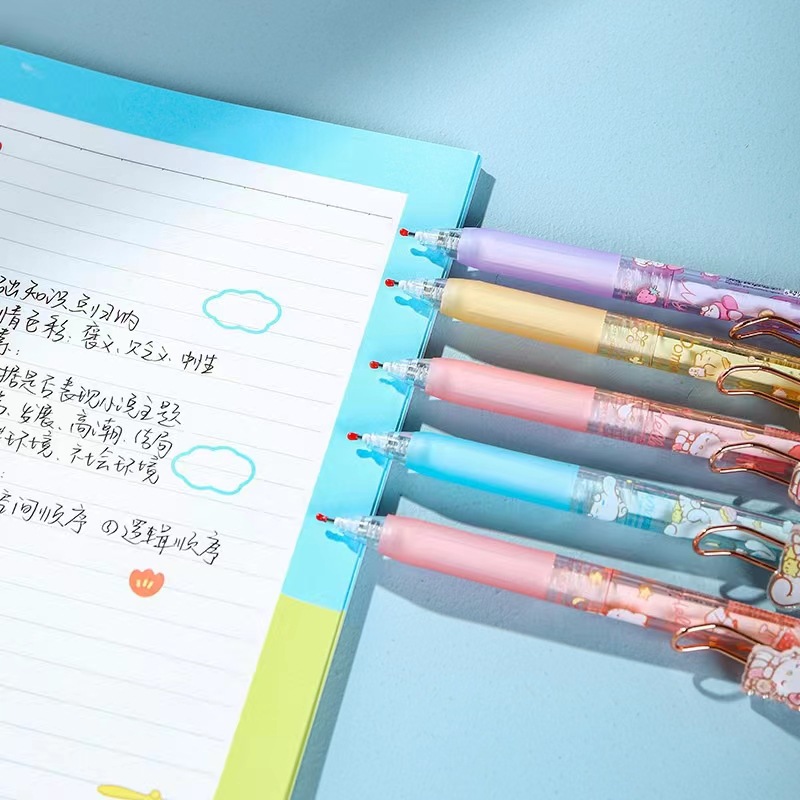 础知识点归纳
情色彩:褒义、贬义、中性
素:
据是否表现小说主题
发展、高潮、结局
环境、社会环境
:
空间顺序 ③逻辑顺序